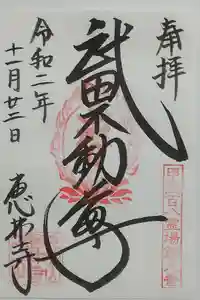 奉拝
武田不動尊
令和二年
十一月廿二日
恵林寺